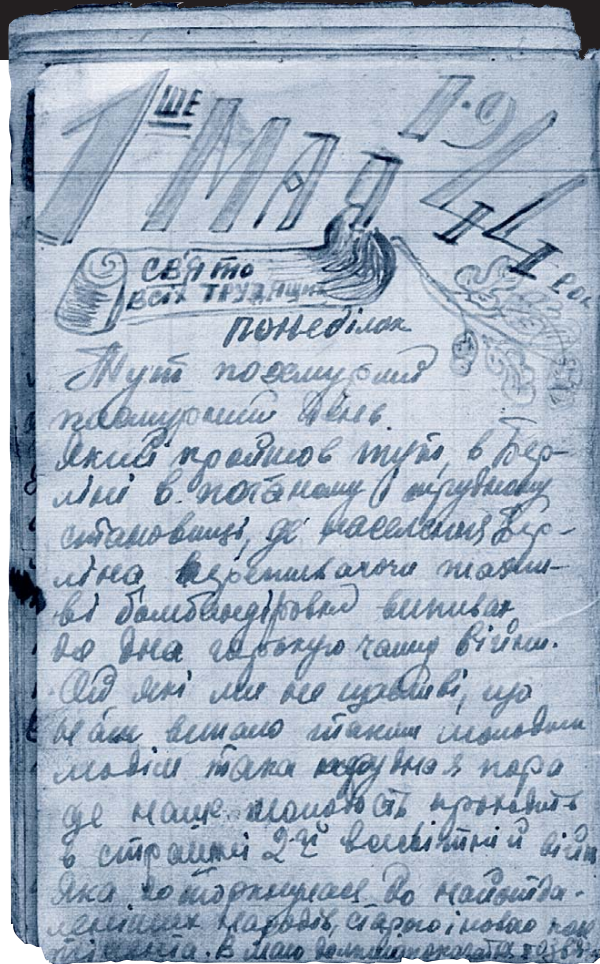 1 ШЕ МАЯ 1944 рок
СВЯТО
ВСІХ ТРУДЯЩИХ
понеділок
Тут похмурий
похмурний день
Який пройшов тут, в Бер-
ліні в поганому і трудному
становищі, де населення Бер-
ліна
ві бомбандіровки випиває
до дна горькую чашу війни.
Ой які ми не щасливі, що
нам випало таким молодим
людім така трудная пора
де наше молодость проходить
в страшній 2-й всесвітній війні
Яка доторкнулася до найотда-
ленішых народів, старого і нового кон
тінента. В маю